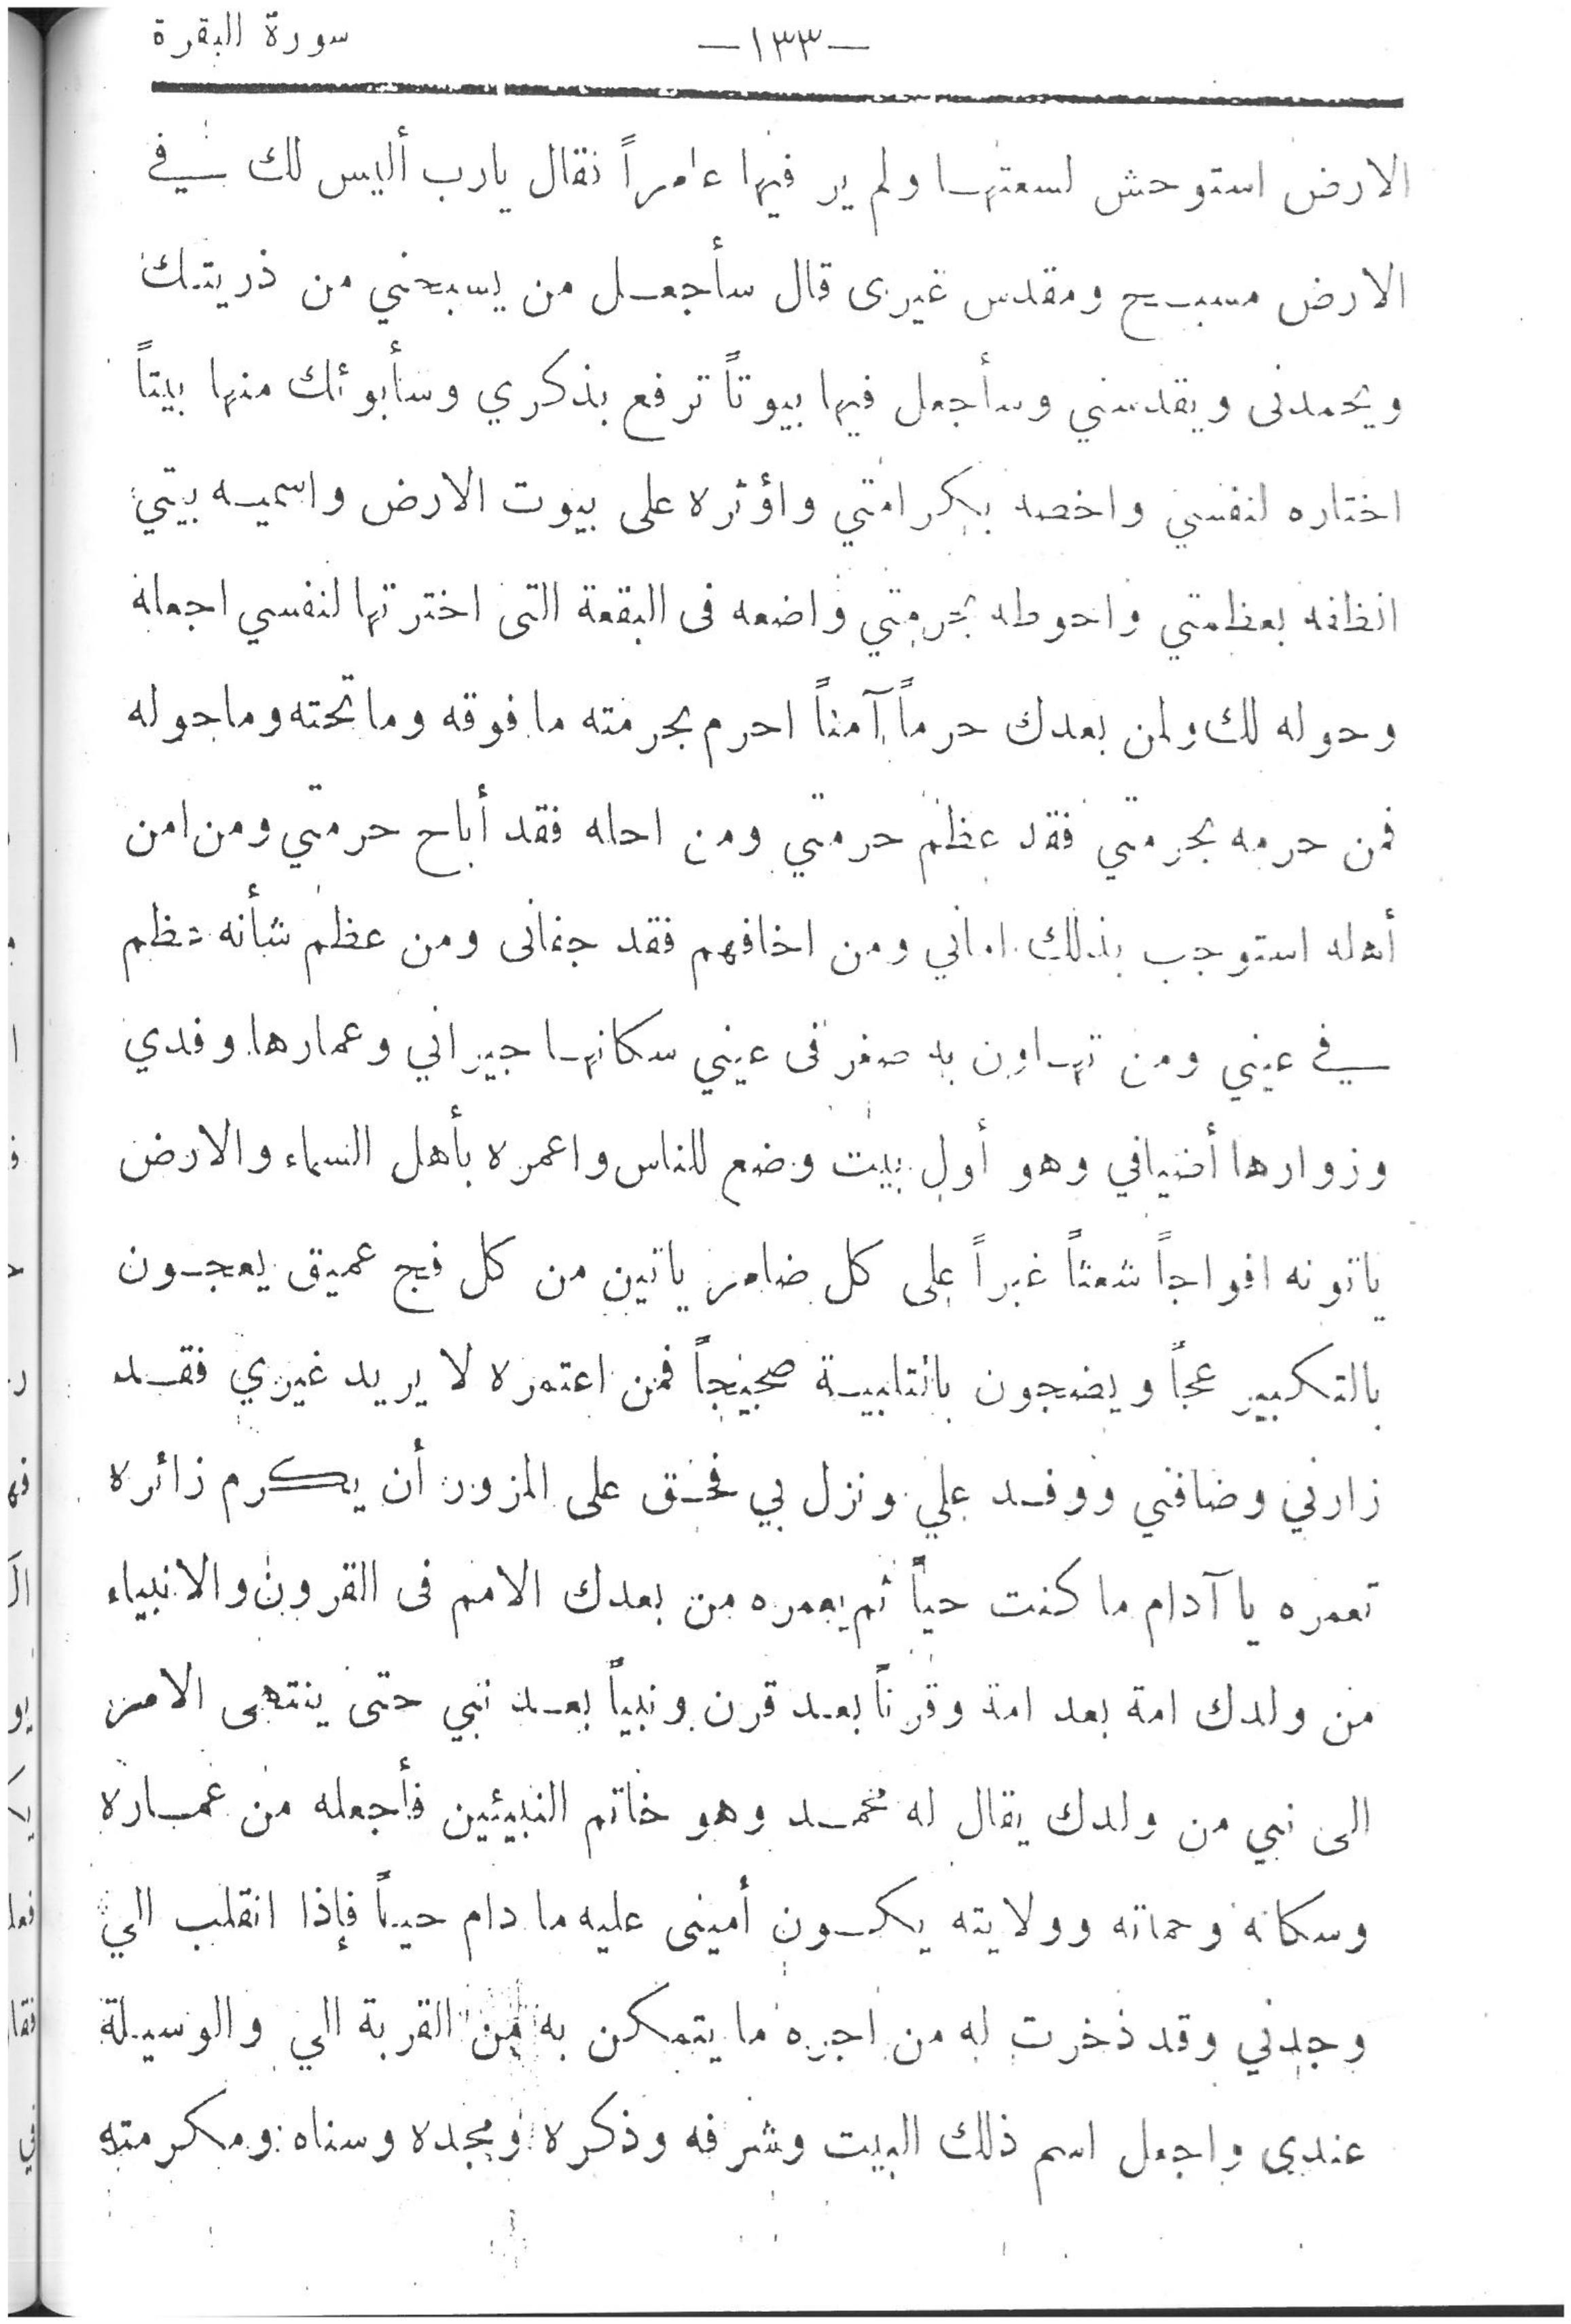 سورة البقرة
—١٣٣—
الارض استوحش لسعتها ولم ير فيها عامراً فقال يارب أليس لك في
الارض مسبح ومقدس غيرى قال سأجعل من يسبحني من ذريتك
ويحمدنى ويقدسني وسأجعل فيها بيوتاً ترفع بذكري وسأبوئك منها بيتاً
اختاره لنفسي واخصه بكرامتي واؤثره على بيوت الارض واسميه بيتي
بعظمتي واحوطه بحرمتي واضعه فى البقعة التى اخترتها لنفسي اجعله
وحوله لك ولمن بعدك حرماً آمناً احرم بحرمته ما فوقه وما تحته وما حوله
فمن حرمه بحرمتي فقد عظم حرمتي ومن احله فقد أباح حرمتي ومن امن
أهله استوجب بذلك اماني ومن اخافهم فقد جفانى ومن عظم شأنه عظم
في عيني ومن تهاون به صغر فى عيني سكانها جيراني وعمارها وفدي
وزوارها أضيافي وهو أول بيت وضع للناس واعمره بأهل السماء والارض
ياتونه افواجاً شعثاً غبراً على كل ضامر ياتين من كل فج عميق يعجون
بالتكبير عجاً ويضجون بالتلبية ضجيجاً فمن اعتمره لا يريد غيري فقد
زارني وضافني ووفد علي ونزل بي فحق على المزور أن يكرم زائره
تعمره يا آدام ما كنت حياً ثم يعمره من بعدك الامم فى القرون والانبياء
من ولدك امة بعد امة وقرناً بعد قرن ونبياً بعد نبي حتى ينتهى الامر
الى نبي من ولدك يقال له محمد وهو خاتم النبيئين فأجعله من عماره
وسكانه وحماته وولايته يكون أمينى عليه ما دام حياً فإذا انقلب الي
وجدني وقد ذخرت له من اجره ما يتمكن به من القربة الي والوسيلة
عندى واجعل اسم ذلك البيت وشرفه وذكره ومجده وسناه ومكرمته